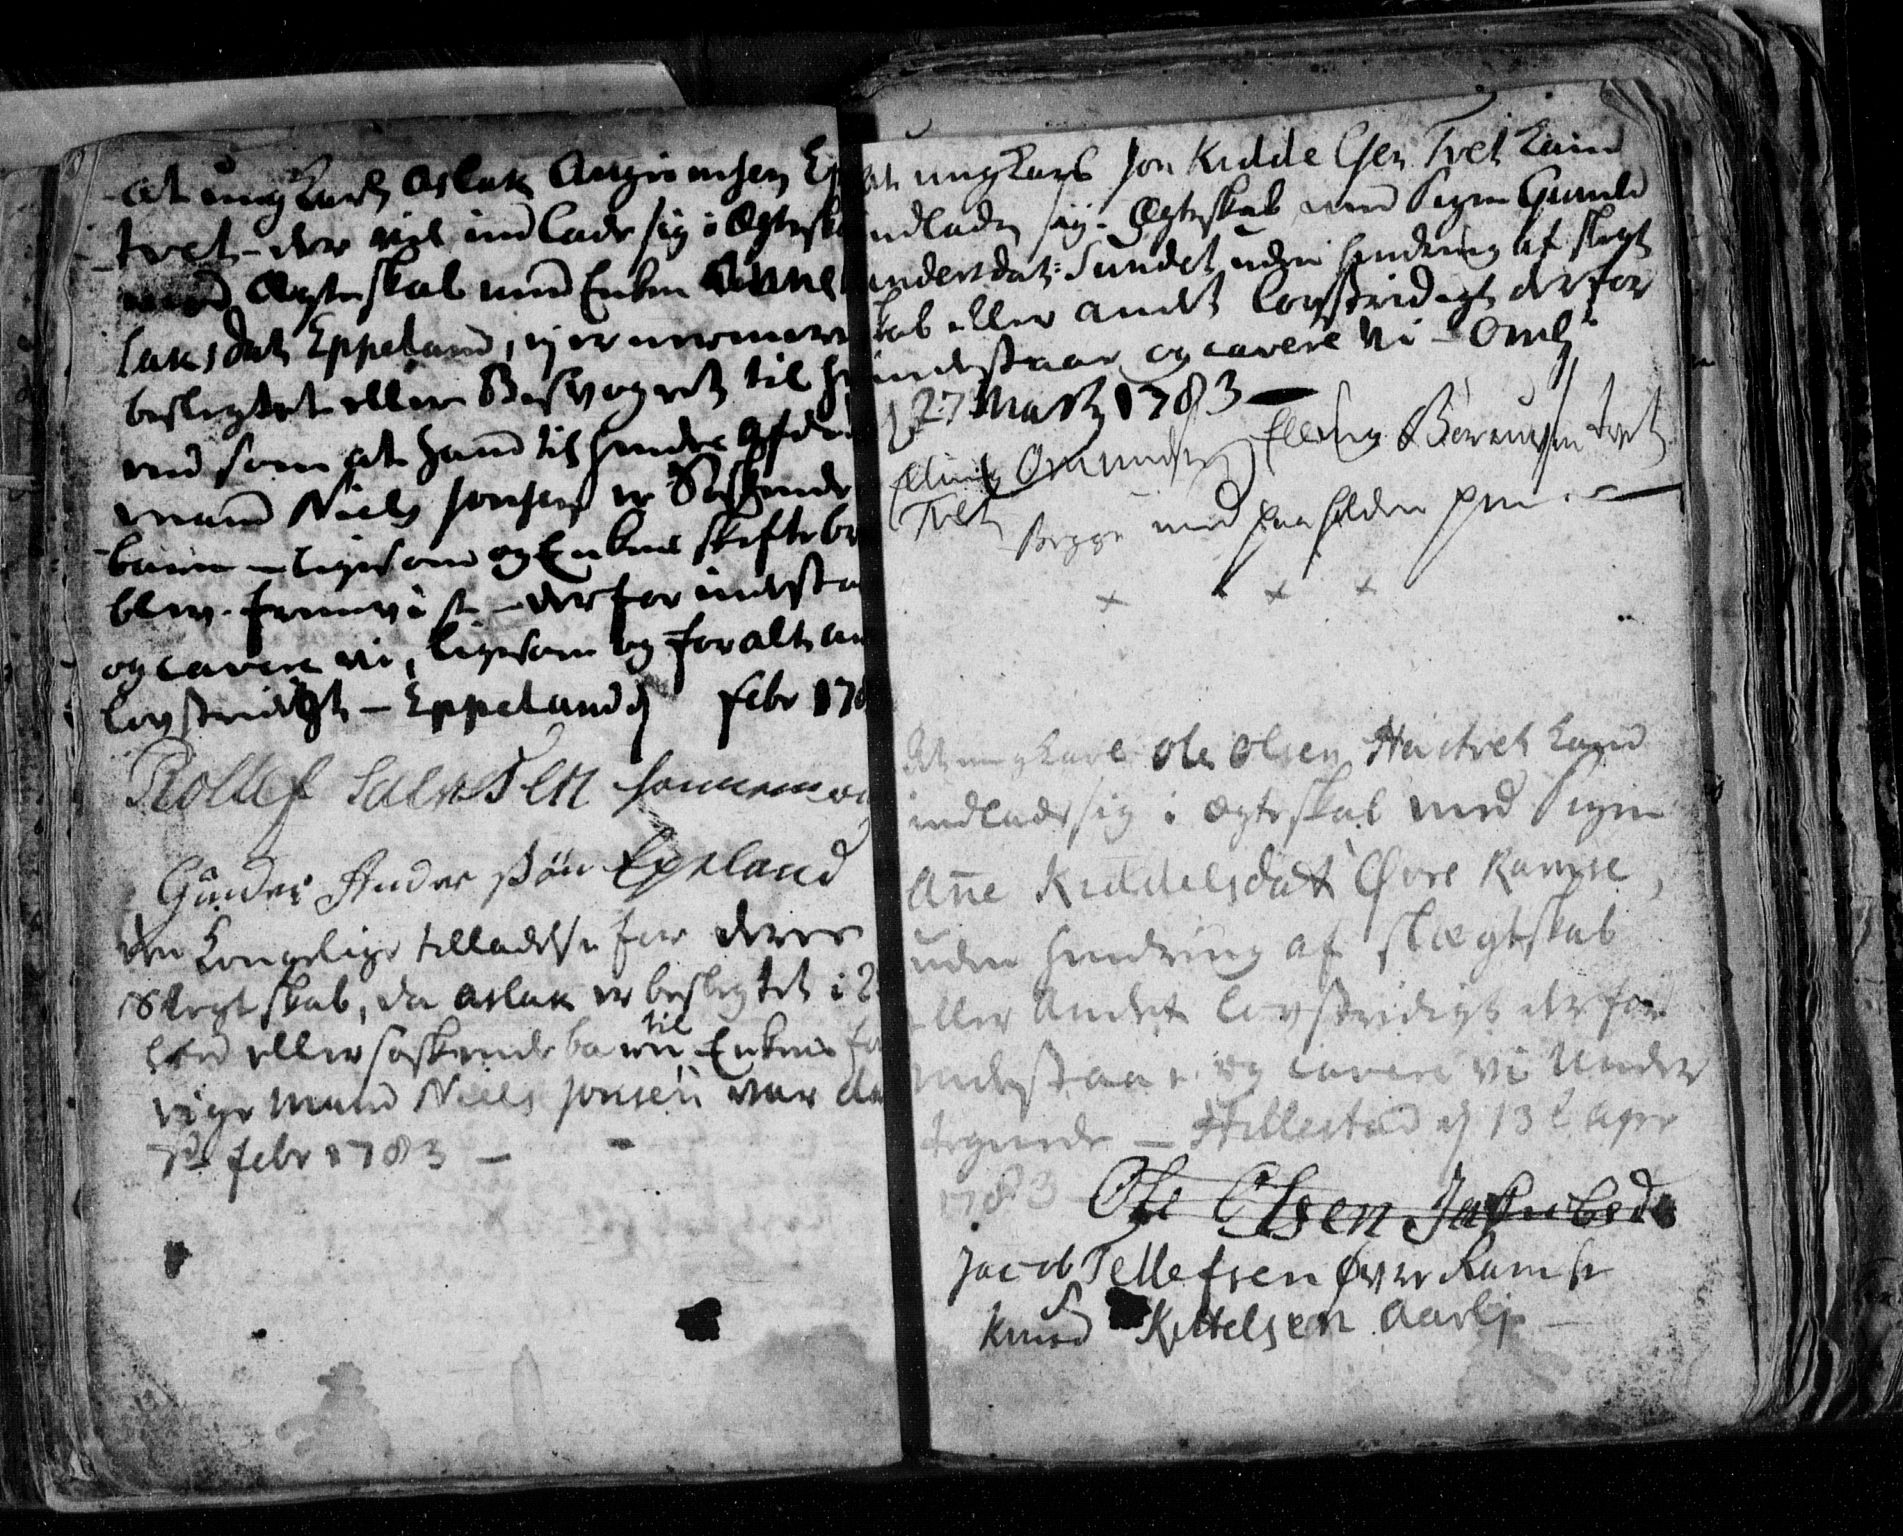 At ung Karl Aslak Angrimsen
tvet - der vil indlade sig i Ægteska
Ægteskab med Enken Anne
laksdat Eppeland, ej er nermere
beslegtet eller Besvogret til
end som at Hand til hendes Afdøde
mand Niels Jonsen er Søskende
barn - ligesom og Enkens skiftebr
blev fremvist - derfor indestaa
og cavere vi, ligesom og for alt an
lovstridigt - Eppeland d febr 178
Rollef Salvesen
Gunder Anderssøn Epeland
den Kongelige tilladelse for deres
Slegtskab, da Aslak er beslegtet i 2
Led eller søskendebarn til Enkens fo
rige Mand Niels Jonsen var da
febr 1783 -
At ung Karl Jon Kiddelsen Tvet Kand
indlade sig i Ægteskab med Pigen Gunild
Andersdat: Sundet uden hindring af slegt
skab eller andet lovstridigt derfor
indestaar og cavere vi - Omli
d 27 Marty 1783 -
Elling Omundsen Elling Børrusen Tvet
Tvet begge med paaholden pen
x x x
At ung Karl Ole Olsen Hustvet Kand
indlade sig i Ægteskab med Pigen
Anne Kiddelsdat Øvre Ramse,
uden hindring af slægtskab
eller Andet lovstridigt derfor
indestaar og cavere vi Under
tegnede - Hillestad d 13 Apr
1783
Ole Olsen
Jacob Tellefsen Øvre Ramse
Knud Kittelsen Aarli